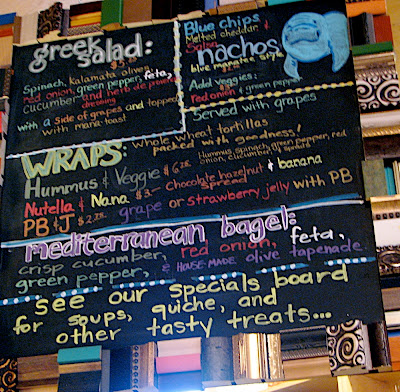 greek
salad:
Spinach, kalamata olives,
red onion, green pepper, feta,
cucumber and herb de provence
dressing
with a side of grapes and topped
with mana toast
Blue chips
Melted cheddar &
Salsa
nachos
blue manatee style
Add veggies:
Red onion & green pepper
Served with grapes
WRAPS: Whole wheat tortillas
packed with goodness!
Hummus & Veggie
Hummus, spinach, green pepper, red
onion, cucumber, & sprouts
Nutella & Nana $3- Chocolate hazelnut & banana
spread
PB & J grape or strawberry jelly with PB
mediterranean bagel:
crisp cucumber, red onion, feta,
green pepper, & HOUSE-MADE olive tapenade
see our specials board
for soups, quiche, and
other tasty treats...